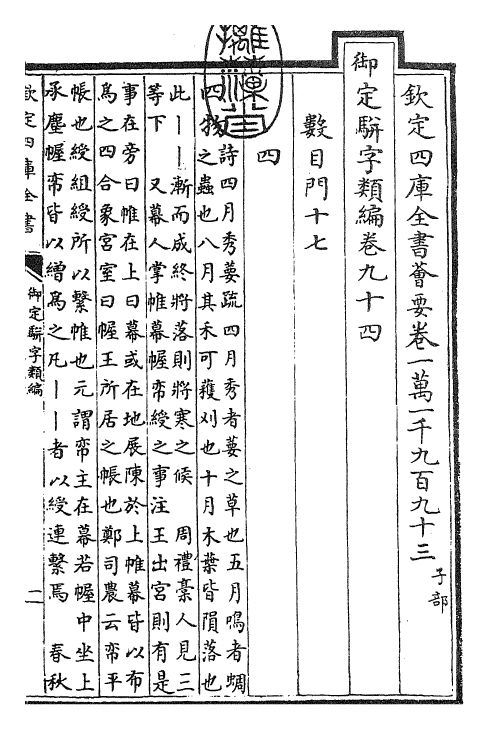 欽定四庫全書薈要卷一萬一千九百九十三 子部
御定駢字類編卷九十四
數目門十七
四
四物 詩四月秀葽疏四月秀者葽之草也五月鳴者蜩
之蟲也八月其禾可穫刈也十月木葉皆隕落也
此丨丨漸而成終將落則將寒之候 周禮稾人見三
等下 又幕人掌帷幕幄帟綬之事注王出宮則有是
事在旁曰帷在上曰幕或在地展陳於上帷幕皆以布
為之四合象宮室曰幄王所居之帳也鄭司農云帟平
帳也綬組綬所以繫帷也元謂帟主在幕若幄中坐上
承塵幄帟皆以繒為之凡丨丨者以綬連繫焉 春秋
欽定四庫全書
御定駢字類編
二